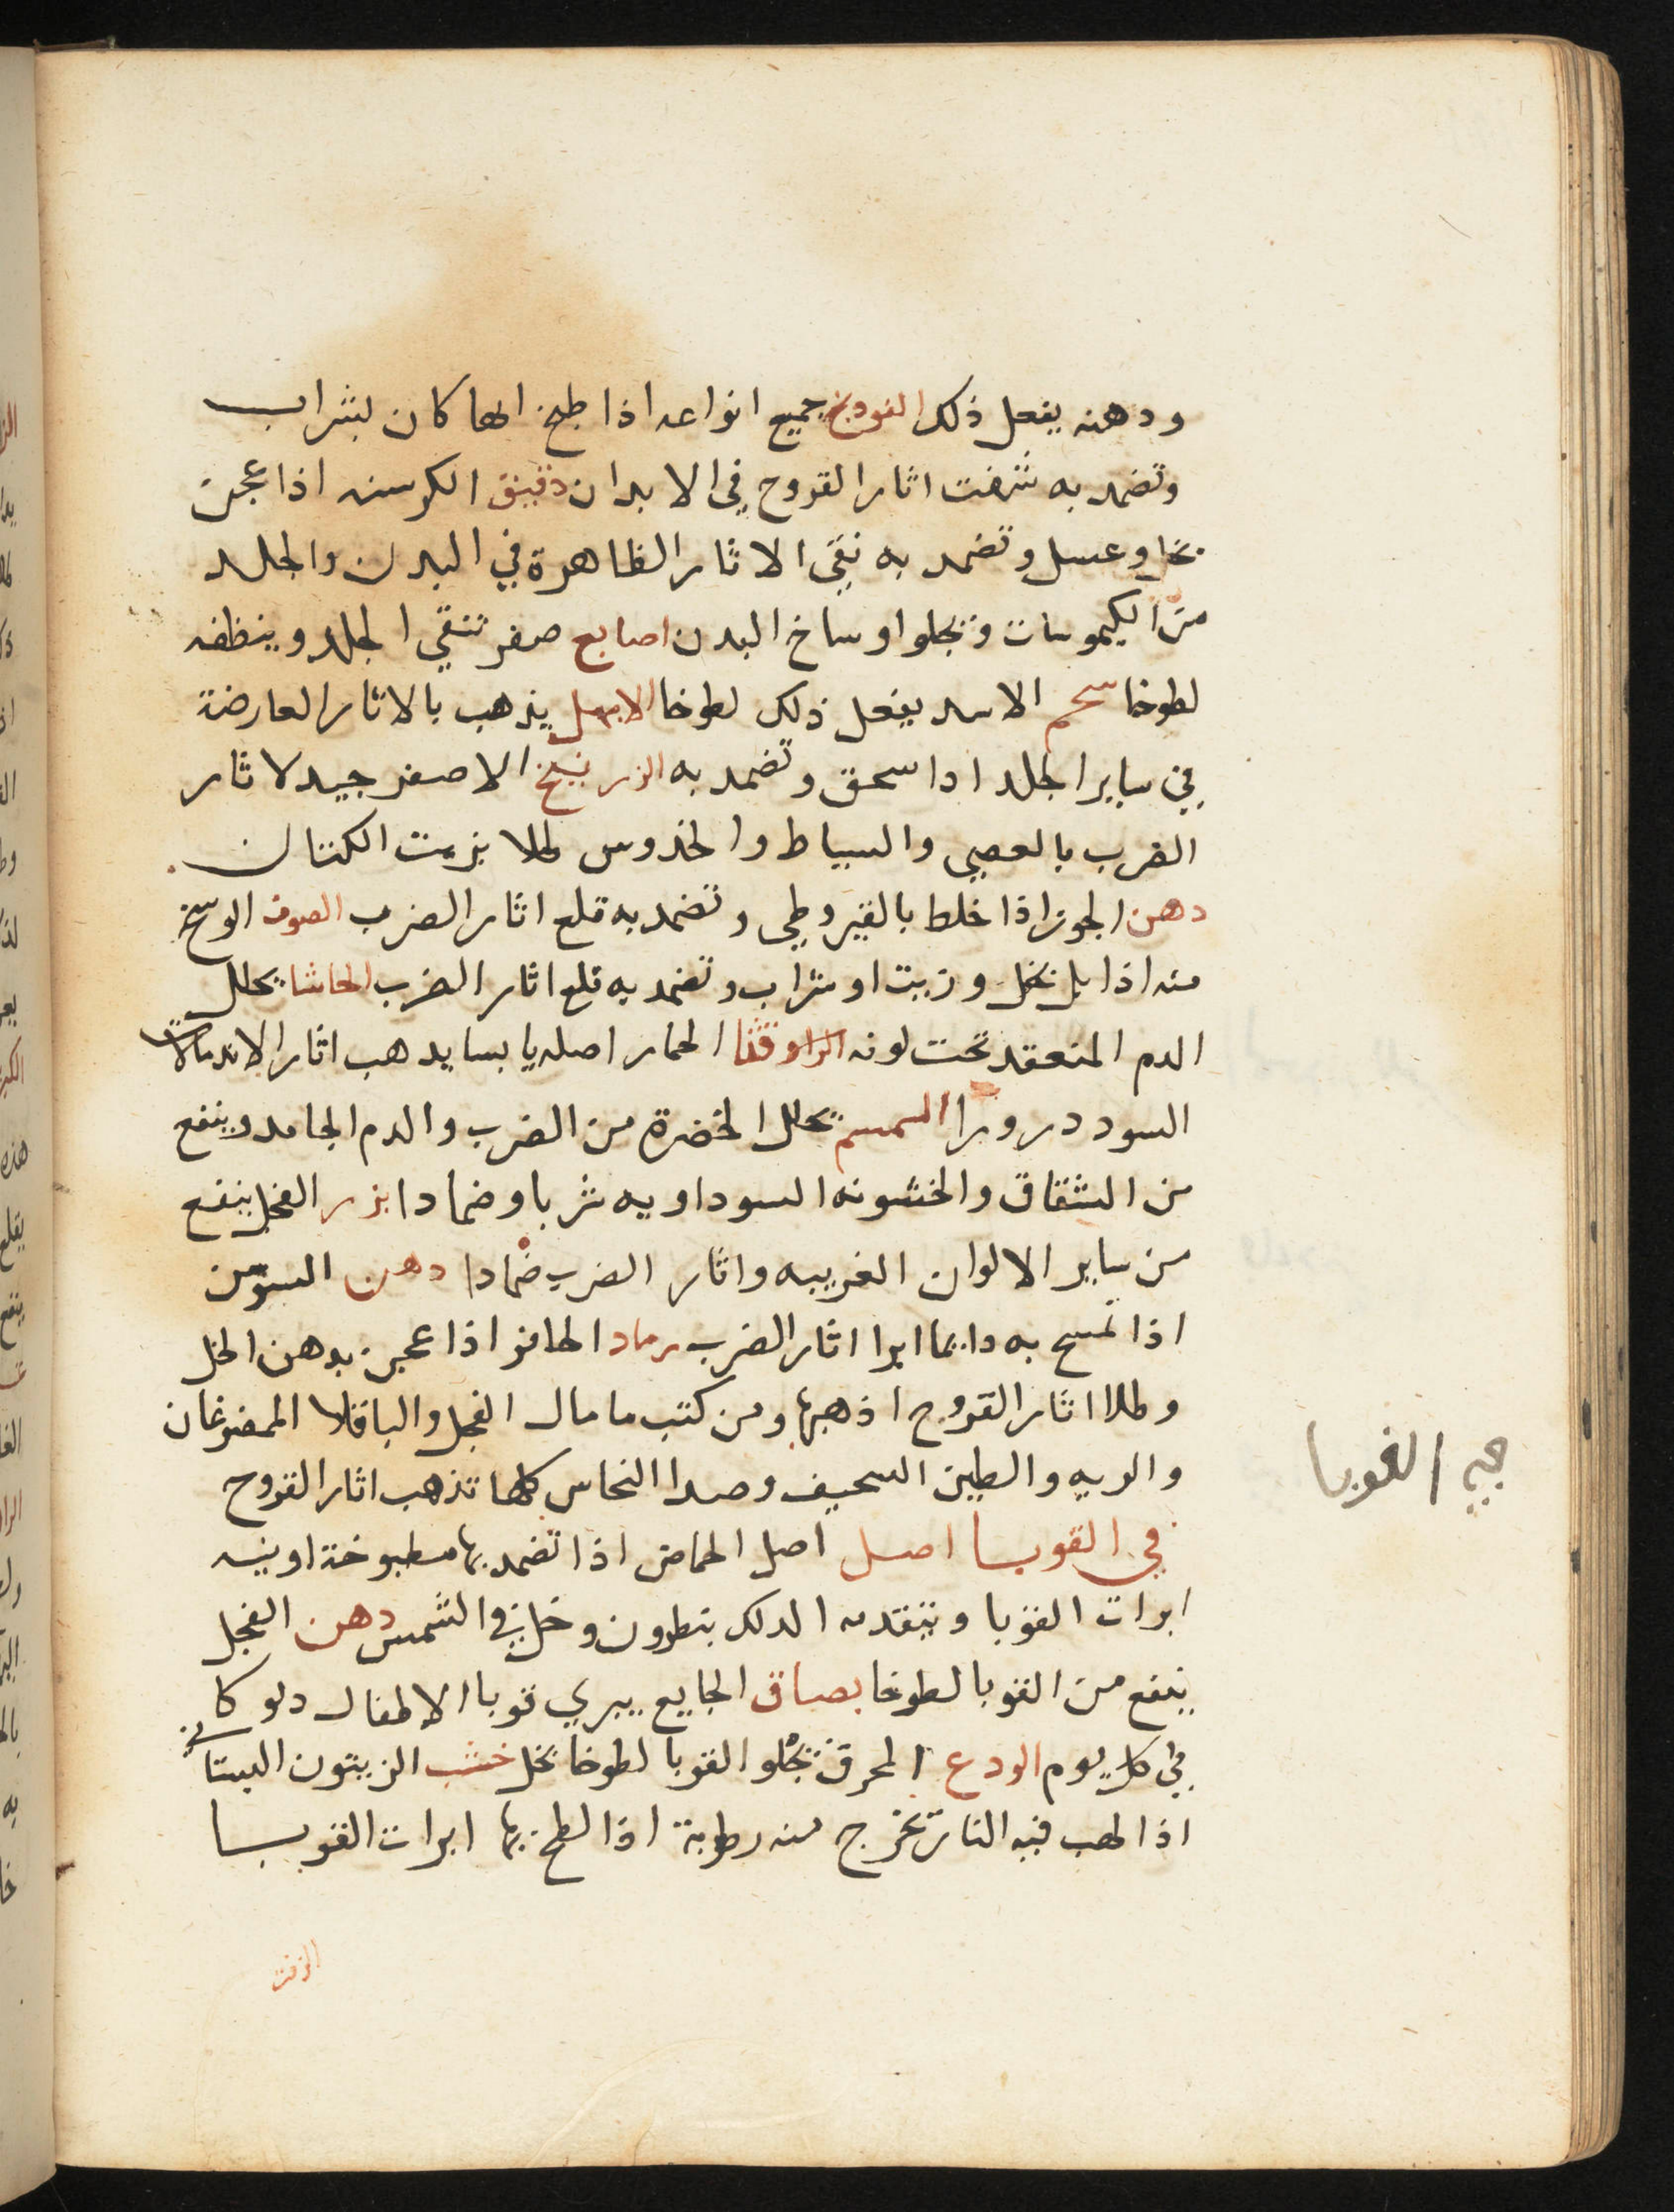 ودهنه يفعل ذلك الفودنج جميع انواعه اذا طبخ ايها كان بشراب
وتضمد به شفت اثار القروح في الابدان دقيق الكرسنه اذا عجن
بخل وعسل وتضمد به نقي الاثار الظاهرة في البدن والجلد
من الكيموسات وتجلوا اوساخ البدن اصابع صفر تنقي الجلد وينظفه
لطوخا شحم الاسد يفعل ذلك لطوخا الابهل يذهب بالاثار العارضة
في ساير الجلد اذا سحق وتضمد به الزرنيخ الاصفر جيد لاثار
الضرب بالعصي والسياط والخدوس طلا بزيت الكتان
دهن الجوز اذا خلط بالقيروطي وتضمد به قلع اثار الضرب الصوف الوسخ
منه اذا بل بخل وزيت او شراب وتضمد به قلع اثار الضرب الحاشا يحلل
الدم المنعقد تحت لونه قثا الحمار اصله يابسا يدهب اثار الاندمالات
السود درورا السمسم يحلل الخضرة من الضرب والدم الجامد وينفع
من الشقاق والخشونه السوداويه شربا وضمادا بزر الفجل ينفع
من ساير الالوان الغريبه واثار الضرب ضمادا دهن السوسن
اذا تمسح به دايما ابرا اثار الضرب رماد الحافر اذا عجن بدهن الخل
وطلا اثار القروح اذهبها ومن كتب ما مال الفجل والباقلا الممضوغان
والريه والطين السحيف وصدا النحاس كلها تذهب اثار القروح
في القوبا اصل اصل الحماض اذا تضمد بها مطبوخة او نيه
ابرات القوبا ويتقدمه الدلك بنطرون وخل في الشمس دهن الفجل
ينفع من القوبا لطوخا بصاق الجايع يبري قوبا الاطفال دلوكا
في كل يوم الودع المحرق تجلو القوبا لطوخا بخل خشب الزيتون البستاني
اذا لهب فيه النار تخرج منه رطوبة اذا لطخ بها ابرات القوبا
في القوبا
الزفت